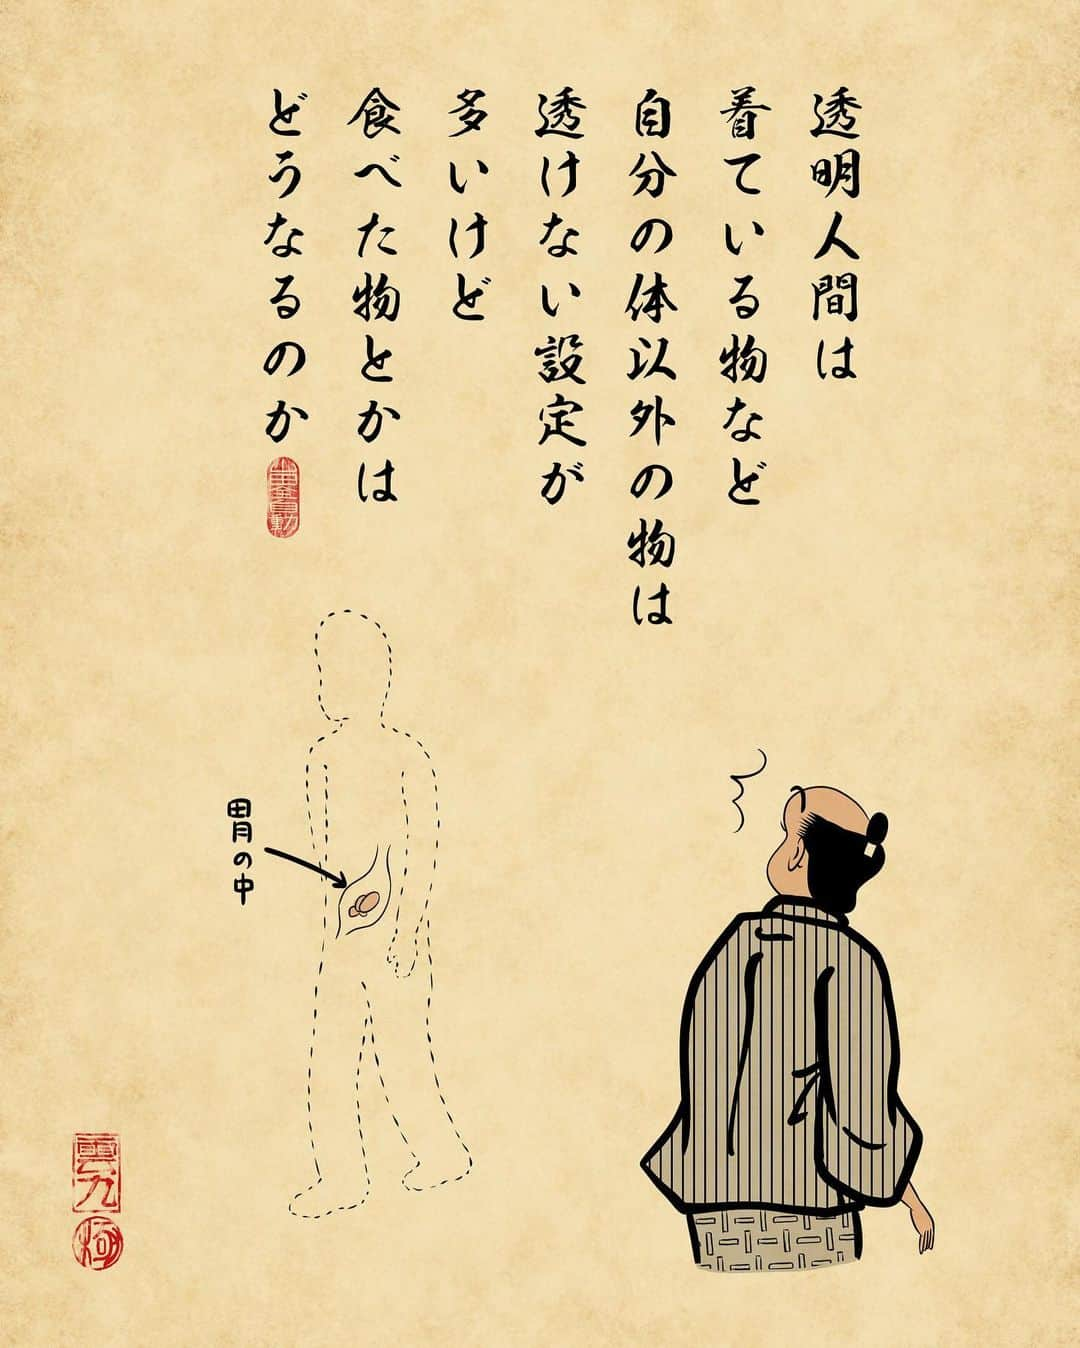 透明人間は
着ている物など
自分の体以外の物は
透けない設定が
多いけど
食べた物とかは
どうなるのか
胃の中